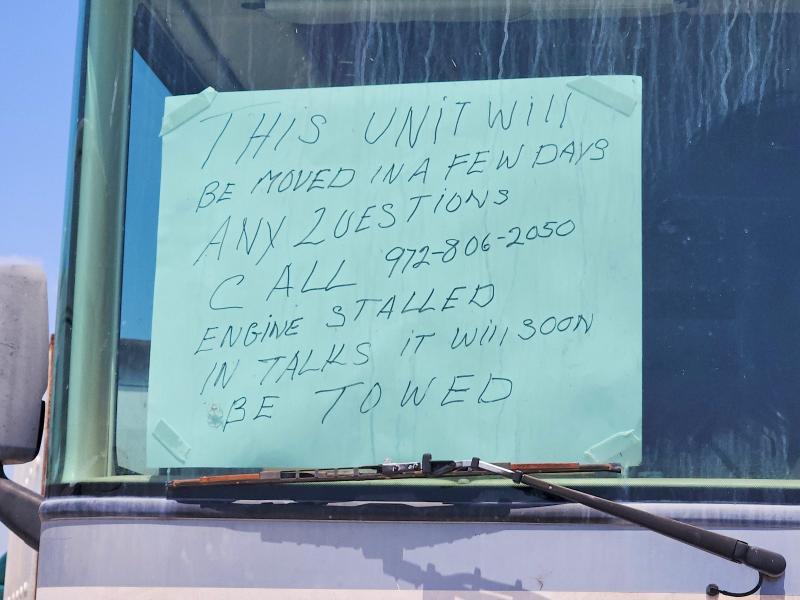 THIS UNIT Will
BE MOVED IN A FEW DAYS
ANY QUESTIONS
CALL 972-806-2050
ENGINE STALLED
IN TALKS iT Will SOON
BE TOWED